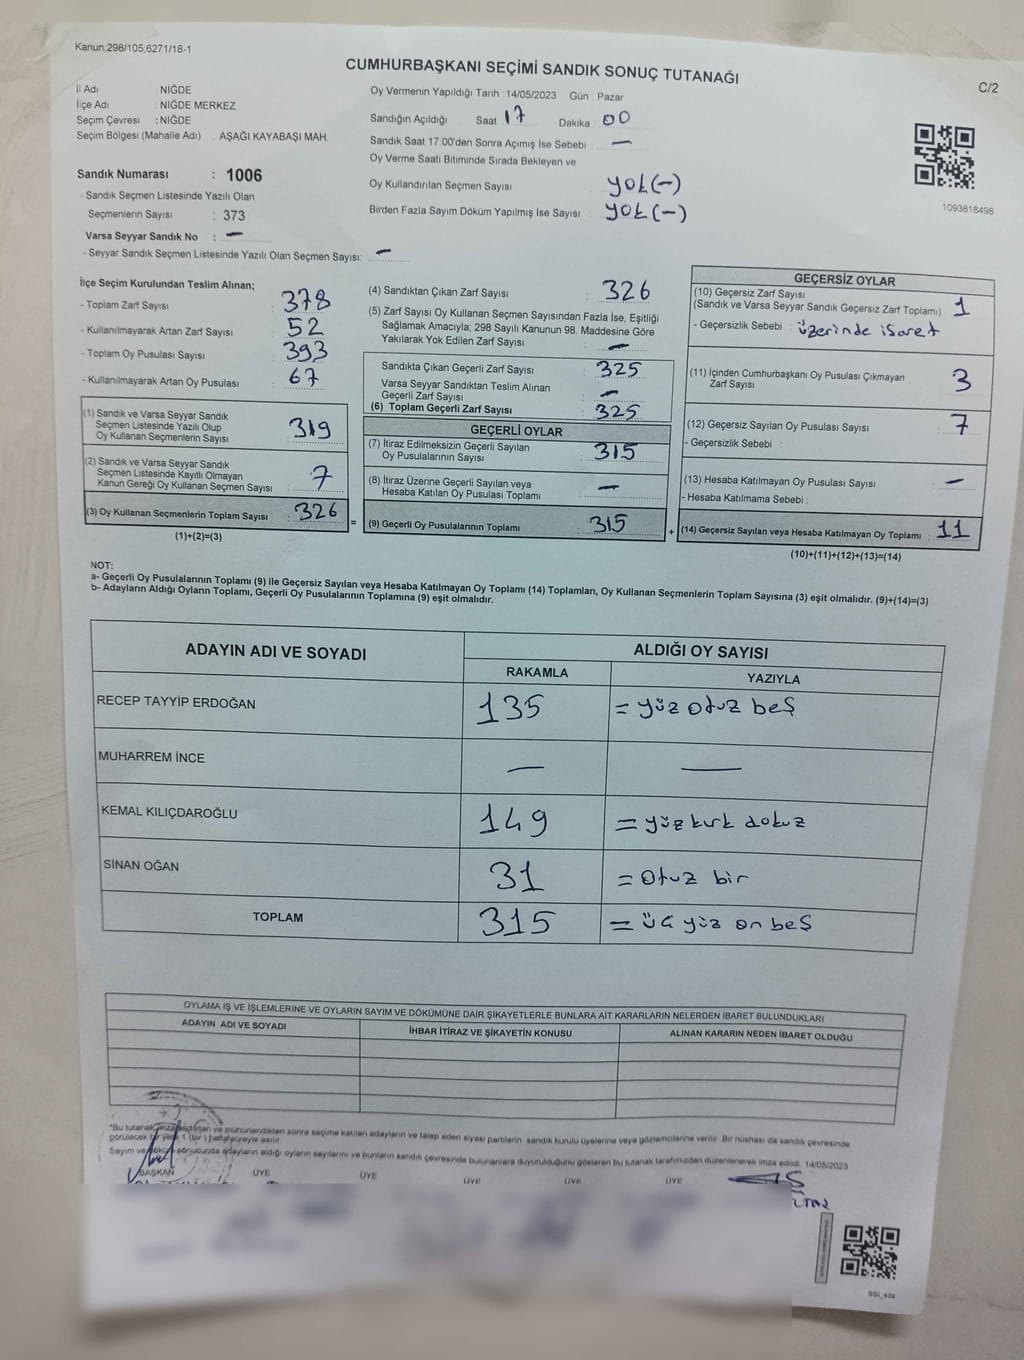 Kanun;298/105,6271/18-1
CUMHURBAŞKANI SEÇİMİ SANDIK SONUÇ TUTANAĞI
C/2
İl Adı : NİĞDE
İlçe Adı : NİĞDE MERKEZ
Seçim Çevresi : NİĞDE
Seçim Bölgesi (Mahalle Adı) : AŞAĞI KAYABAŞI MAH.
Oy Vermenin Yapıldığı Tarih : 14/05/2023 Gün : Pazar
Sandığın Açıldığı Saat 17 Dakika : 00
Sandık Saat 17:00'den Sonra Açımış İse Sebebi : —
Oy Verme Saati Bitiminde Sırada Bekleyen ve
Oy Kullandırılan Seçmen Sayısı : YOK(-)
Birden Fazla Sayım Döküm Yapılmış İse Sayısı : YOK(-)
1093818498
Sandık Numarası : 1006
- Sandık Seçmen Listesinde Yazılı Olan
Seçmenlerin Sayısı : 373
Varsa Seyyar Sandık No : —
- Seyyar Sandık Seçmen Listesinde Yazılı Olan Seçmen Sayısı: —
İlçe Seçim Kurulundan Teslim Alınan;
- Toplam Zarf Sayısı : 378
- Kullanılmayarak Artan Zarf Sayısı : 52
- Toplam Oy Pusulası Sayısı : 393
- Kullanılmayarak Artan Oy Pusulası : 67
(1) Sandık ve Varsa Seyyar Sandık
Seçmen Listesinde Yazılı Olup
Oy Kullanan Seçmenlerin Sayısı : 319
(2) Sandık ve Varsa Seyyar Sandık
Seçmen Listesinde Kayıtlı Olmayan
Kanun Gereği Oy Kullanan Seçmen Sayısı : 7
(3) Oy Kullanan Seçmenlerin Toplam Sayısı : 326
(1)+(2)=(3)
=
(4) Sandıktan Çıkan Zarf Sayısı : 326
(5) Zarf Sayısı Oy Kullanan Seçmen Sayısından Fazla İse, Eşitliği
Sağlamak Amacıyla; 298 Sayılı Kanunun 98. Maddesine Göre
Yakılarak Yok Edilen Zarf Sayısı : —
Sandıkta Çıkan Geçerli Zarf Sayısı : 325
Varsa Seyyar Sandıktan Teslim Alınan
Geçerli Zarf Sayısı : —
(6) Toplam Geçerli Zarf Sayısı : 325
GEÇERLİ OYLAR
(7) İtiraz Edilmeksizin Geçerli Sayılan
Oy Pusulalarının Sayısı : 315
(8) İtiraz Üzerine Geçerli Sayılan veya
Hesaba Katılan Oy Pusulası Toplamı : —
(9) Geçerli Oy Pusulalarının Toplamı : 315
+
GEÇERSİZ OYLAR
(10) Geçersiz Zarf Sayısı
(Sandık ve Varsa Seyyar Sandık Geçersiz Zarf Toplamı) : 1
- Geçersizlik Sebebi : üzerinde işaret
(11) İçinden Cumhurbaşkanı Oy Pusulası Çıkmayan
Zarf Sayısı : 3
(12) Geçersiz Sayılan Oy Pusulası Sayısı : 7
- Geçersizlik Sebebi :
(13) Hesaba Katılmayan Oy Pusulası Sayısı : —
- Hesaba Katılmama Sebebi :
(14) Geçersiz Sayılan veya Hesaba Katılmayan Oy Toplamı : 11
(10)+(11)+(12)+(13)=(14)
NOT:
a- Geçerli Oy Pusulalarının Toplamı (9) ile Geçersiz Sayılan veya Hesaba Katılmayan Oy Toplamı (14) Toplamları, Oy Kullanan Seçmenlerin Toplam Sayısına (3) eşit olmalıdır. (9)+(14)=(3)
b- Adayların Aldığı Oyların Toplamı, Geçerli Oy Pusulalarının Toplamına (9) eşit olmalıdır.
ADAYIN ADI VE SOYADI
ALDIĞI OY SAYISI
RAKAMLA YAZIYLA
RECEP TAYYİP ERDOĞAN 135 = yüz otuz beş
MUHARREM İNCE — —
KEMAL KILIÇDAROĞLU 149 = yüz kırk dokuz
SİNAN OĞAN 31 = otuz bir
TOPLAM 315 = üç yüz on beş
OYLAMA İŞ VE İŞLEMLERİNE VE OYLARIN SAYIM VE DÖKÜMÜNE DAİR ŞİKAYETLERLE BUNLARA AİT KARARLARIN NELERDEN İBARET BULUNDUKLARI
ADAYIN ADI VE SOYADI İHBAR İTİRAZ VE ŞİKAYETİN KONUSU ALINAN KARARIN NEDEN İBARET OLDUĞU
"Bu tutanak imzalandıktan ve mühürlendikten sonra seçime katılan adayların ve talep eden siyasi partilerin sandık kurulu üyelerine veya gözlemcilerine verilir. Bir nüshası da sandık çevresinde
görülecek bir yere 1 (bir) hafta süreyle asılır.
Sayım ve döküm sonucunda adayların aldığı oyların sayılarını ve bunların sandık çevresinde bulunanlara duyurulduğunu gösteren bu tutanak tarafımızdan düzenlenerek imza edildi. 14/05/2023
BAŞKAN ÜYE ÜYE ÜYE ÜYE ÜYE